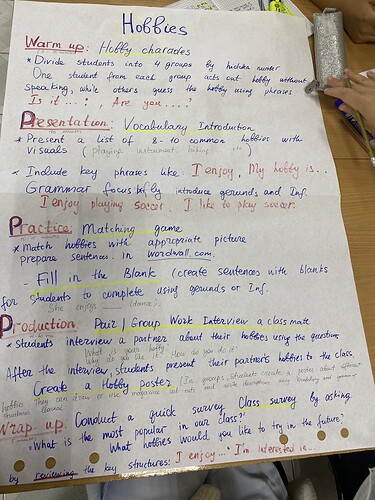 Hobbies
Warm up: Hobby charades
* Divide students into 4 groups by hidden number
One student from each group acts out hobby without
speaking, while others guess the hobby using phrases
Is it ...?, Are you ....?
Presentation: Vocabulary Introduction
* Present a list of 8-10 common hobbies with
visuals (playing instrument, baking
* Include key phrases like: I enjoy, My hobby is..
Grammar focus briefly introduce gerunds and Inf.
I enjoy playing soccer. I like to play soccer.
Practice: Matching game
* Match hobbies with appropriate picture
prepare sentences. in wordwall.com.
- Fill in the Blank (create sentences with blanks
for students to complete using gerunds or Inf.
She enjoys (dance).
Production: Pair / Group Work Interview a class mate
* Students interview a partner about their hobbies using the questions
What is your hobby
Why do you like it? How do you do it?
After the interview, students present their partner's hobbies to the class.
Create a Hobby poster (In groups, students create a poster about different
hobbies They can draw or use magazine cut outs and write descriptions using vocabulary and grammar
structures learned
Wrap up: Conduct a quick survey Class survey by asking.
"What is the most popular in our class?"
What hobbies would you like to try in the future?
by reviewing the key structures: I enjoy... I'm interested in...